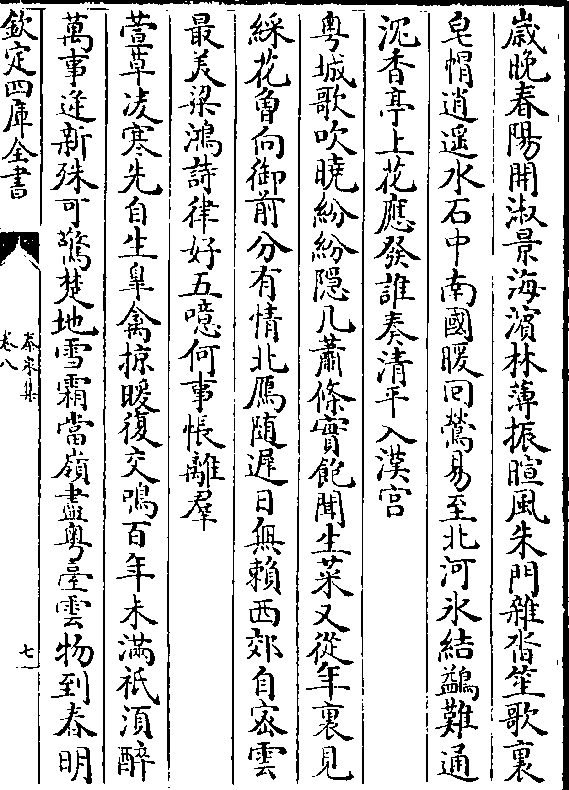 歲晚春陽開淑景海濱林薄振暄風朱門雜沓笙歌裏
皂帽逍遥水石中南國暖回鶯易至北河氷結鷁難通
沉香亭上花應發誰奏清平入漢宫
粤城歌吹曉紛紛隠几蕭條實飽聞生菜又從年裏見
綵花曾向御前分有情北鴈随遲日無賴西郊自宻雲
最羙梁鴻詩律好五噫何事悵離羣
萱草凌寒先自生臯禽掠暖復交鳴百年未滿祇湏醉
萬事迓新殊可驚楚地雪霜當嶺盡粤臺雲物到春明
欽定四庫全書
泰泉集
卷八
七